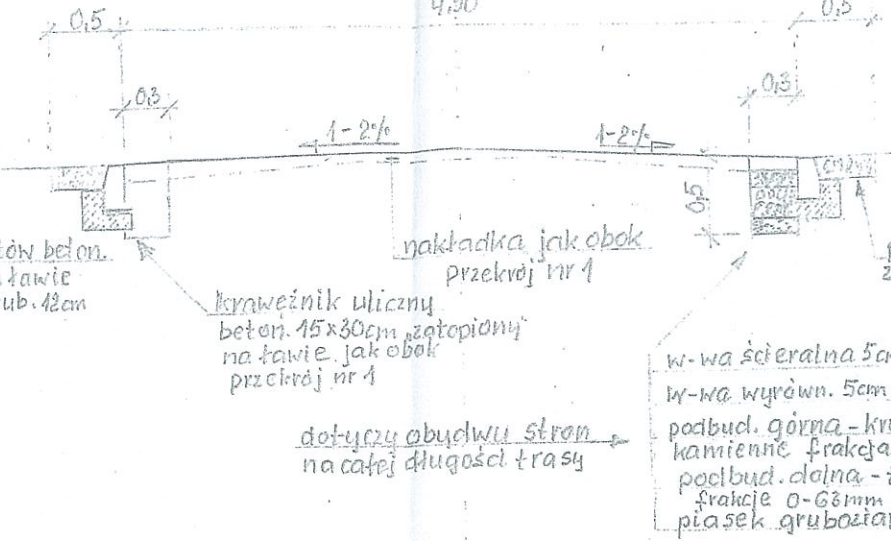 0,5
4,90
0,5
0,3
0,3
1-2%
1-2%
0,5
ów beton.
ławie
ub. 12cm
nakładka jak obok
przekrój nr 1
krawężnik uliczny
beton. 15x30cm „zatopiony"
na ławie jak obok
przekrój nr 1
dotyczy obydwu stron
na całej długości trasy
w-wa ścieralna 5cm
w-wa wyrówn. 5cm
podbud. górna - kru
kamienne frakcja
podbud. dolna -
frakcje 0-63mm
piasek gruboziar